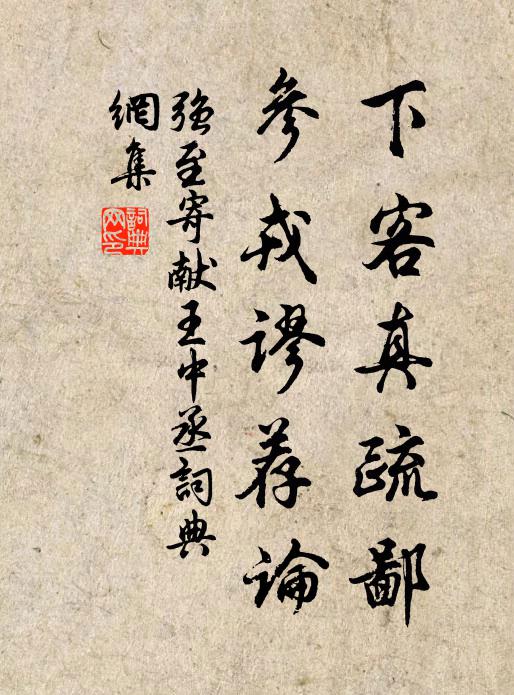 下客真疏鄙
參戎謬荐論
强至寄献王中丞詞典
網集
詞典
网印